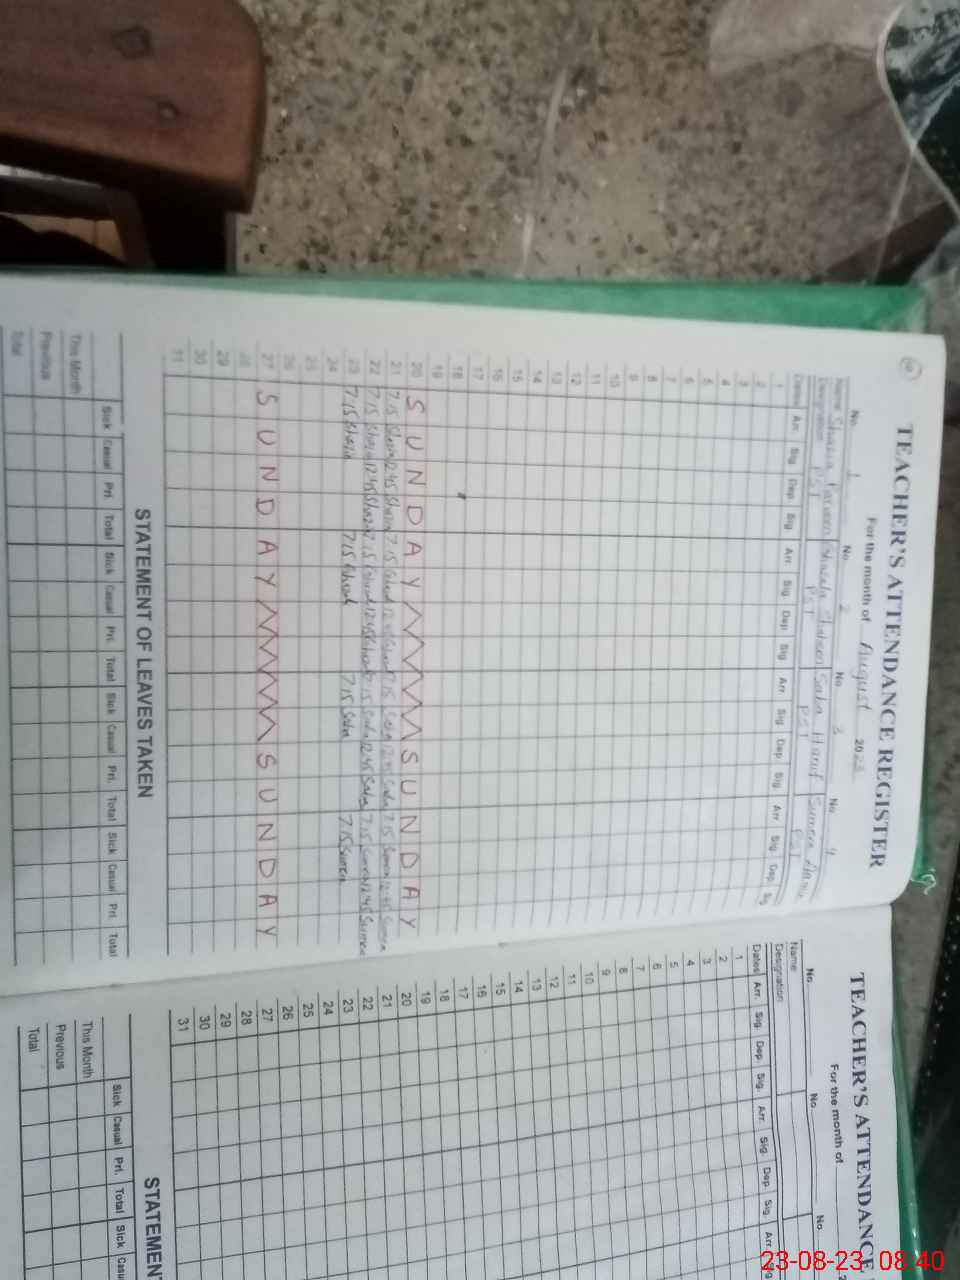 TEACHER'S ATTENDANCE REGISTER
For the month of August 2023
No. 1 No. 2 No. 3 No. 4
Name Shazia Parveen Shaheen Saba Hanif Sumera
Designation PST PST PST PST
Dates Arr. Sig. Dep. Sig. Arr. Sig. Dep. Sig. Arr. Sig. Dep. Sig. Arr. Sig. Dep. Sig.
1
2
3
4
5
6
7
8
9
10
11
12
13
14
15
16
17
18
19
20 SUNDAY SUNDAY
21 7:15 Shazia 12:45 Shazia 7:15 12:45 7:15 Saba 12:45 Saba 7:15 12:45
22 7:15 Shazia 12:45 Shazia 7:15 12:45 7:15 Saba 12:45 Saba 7:15 12:45
23 7:15 Shazia 7:15 7:15 Saba 7:15
24
25
26
27 SUNDAY SUNDAY
28
29
30
31
STATEMENT OF LEAVES TAKEN
Sick Casual Pri. Total Sick Casual Pri. Total Sick Casual Pri. Total Sick Casual Pri. Total
This Month
Previous
Total
TEACHER'S ATTENDANCE
For the month of
No. No. No.
Name
Designation
Dates Arr. Sig. Dep. Sig. Arr. Sig. Dep. Sig. Arr.
1
2
3
4
5
6
7
8
9
10
11
12
13
14
15
16
17
18
19
20
21
22
23
24
25
26
27
28
29
30
31
STATEMENT
Sick Casual Pri. Total Sick
This Month
Previous
Total
23-08-23 08:40